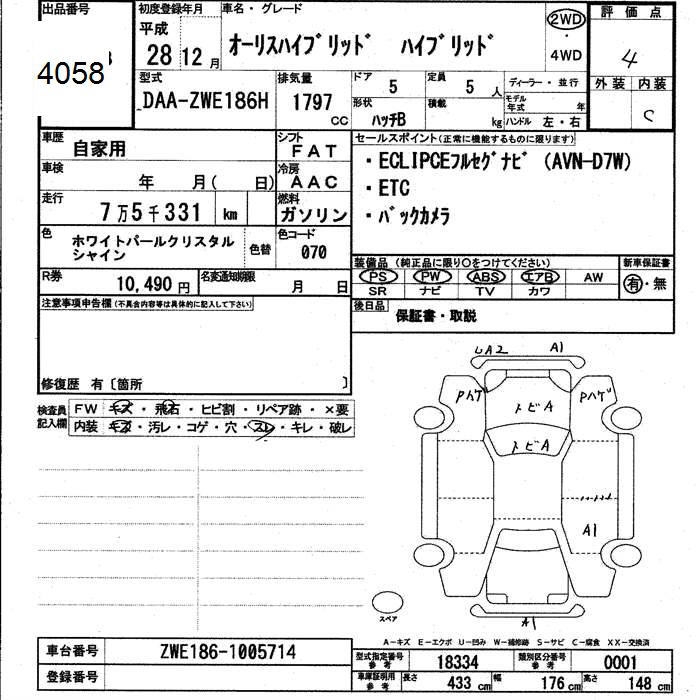 出品番号
4058
初度登録年月
平成
28 12 月
車名・グレード
オーリスハイブリッド ハイブリッド
2WD
・
4WD
評価点
4
外装 内装
C
型式
DAA-ZWE186H
排気量
1797
CC
ドア
5
定員
5 人
ディーラー・並行
形状
ハッチB
積載
kg
モデル
年式 年
ハンドル 左・右
車歴
自家用
シフト
FAT
車検
年 月( 日)
冷房
AAC
走行
7万5千331 km
燃料
ガソリン
色
ホワイトパールクリスタル
シャイン
色替
色コード
070
R券
10,490 円
名変通知期限
月 日
セールスポイント(正常に機能するものに限ります)
・ECLIPCEフルセグナビ (AVN-D7W)
・ETC
・バックカメラ
装備品(純正品に限り○をつけてください)
PS PW ABS エアB AW
SR ナビ TV カワ
新車保証書
有・無
後日品
保証書・取説
注意事項申告欄(不具合内容等は具体的に記入して下さい)
修復歴 有〔箇所 〕
検査員
記入欄
FW キズ・飛石・ヒビ割・リペア跡・×要
内装 キズ・汚レ・コゲ・穴・スレ・キレ・破レ
A2 A1
Pハゲ Pハゲ
トビA
トビA
A1
A1
スペア
A−キズ E−エクボ U−凹み W−補修跡 S−サビ C−腐食 XX−交換済
車台番号
ZWE186-1005714
登録番号
型式指定番号
参考
18334
類別区分番号
参考
0001
車庫証明用
参考
長さ 433 cm 幅 176 cm 高さ 148 cm